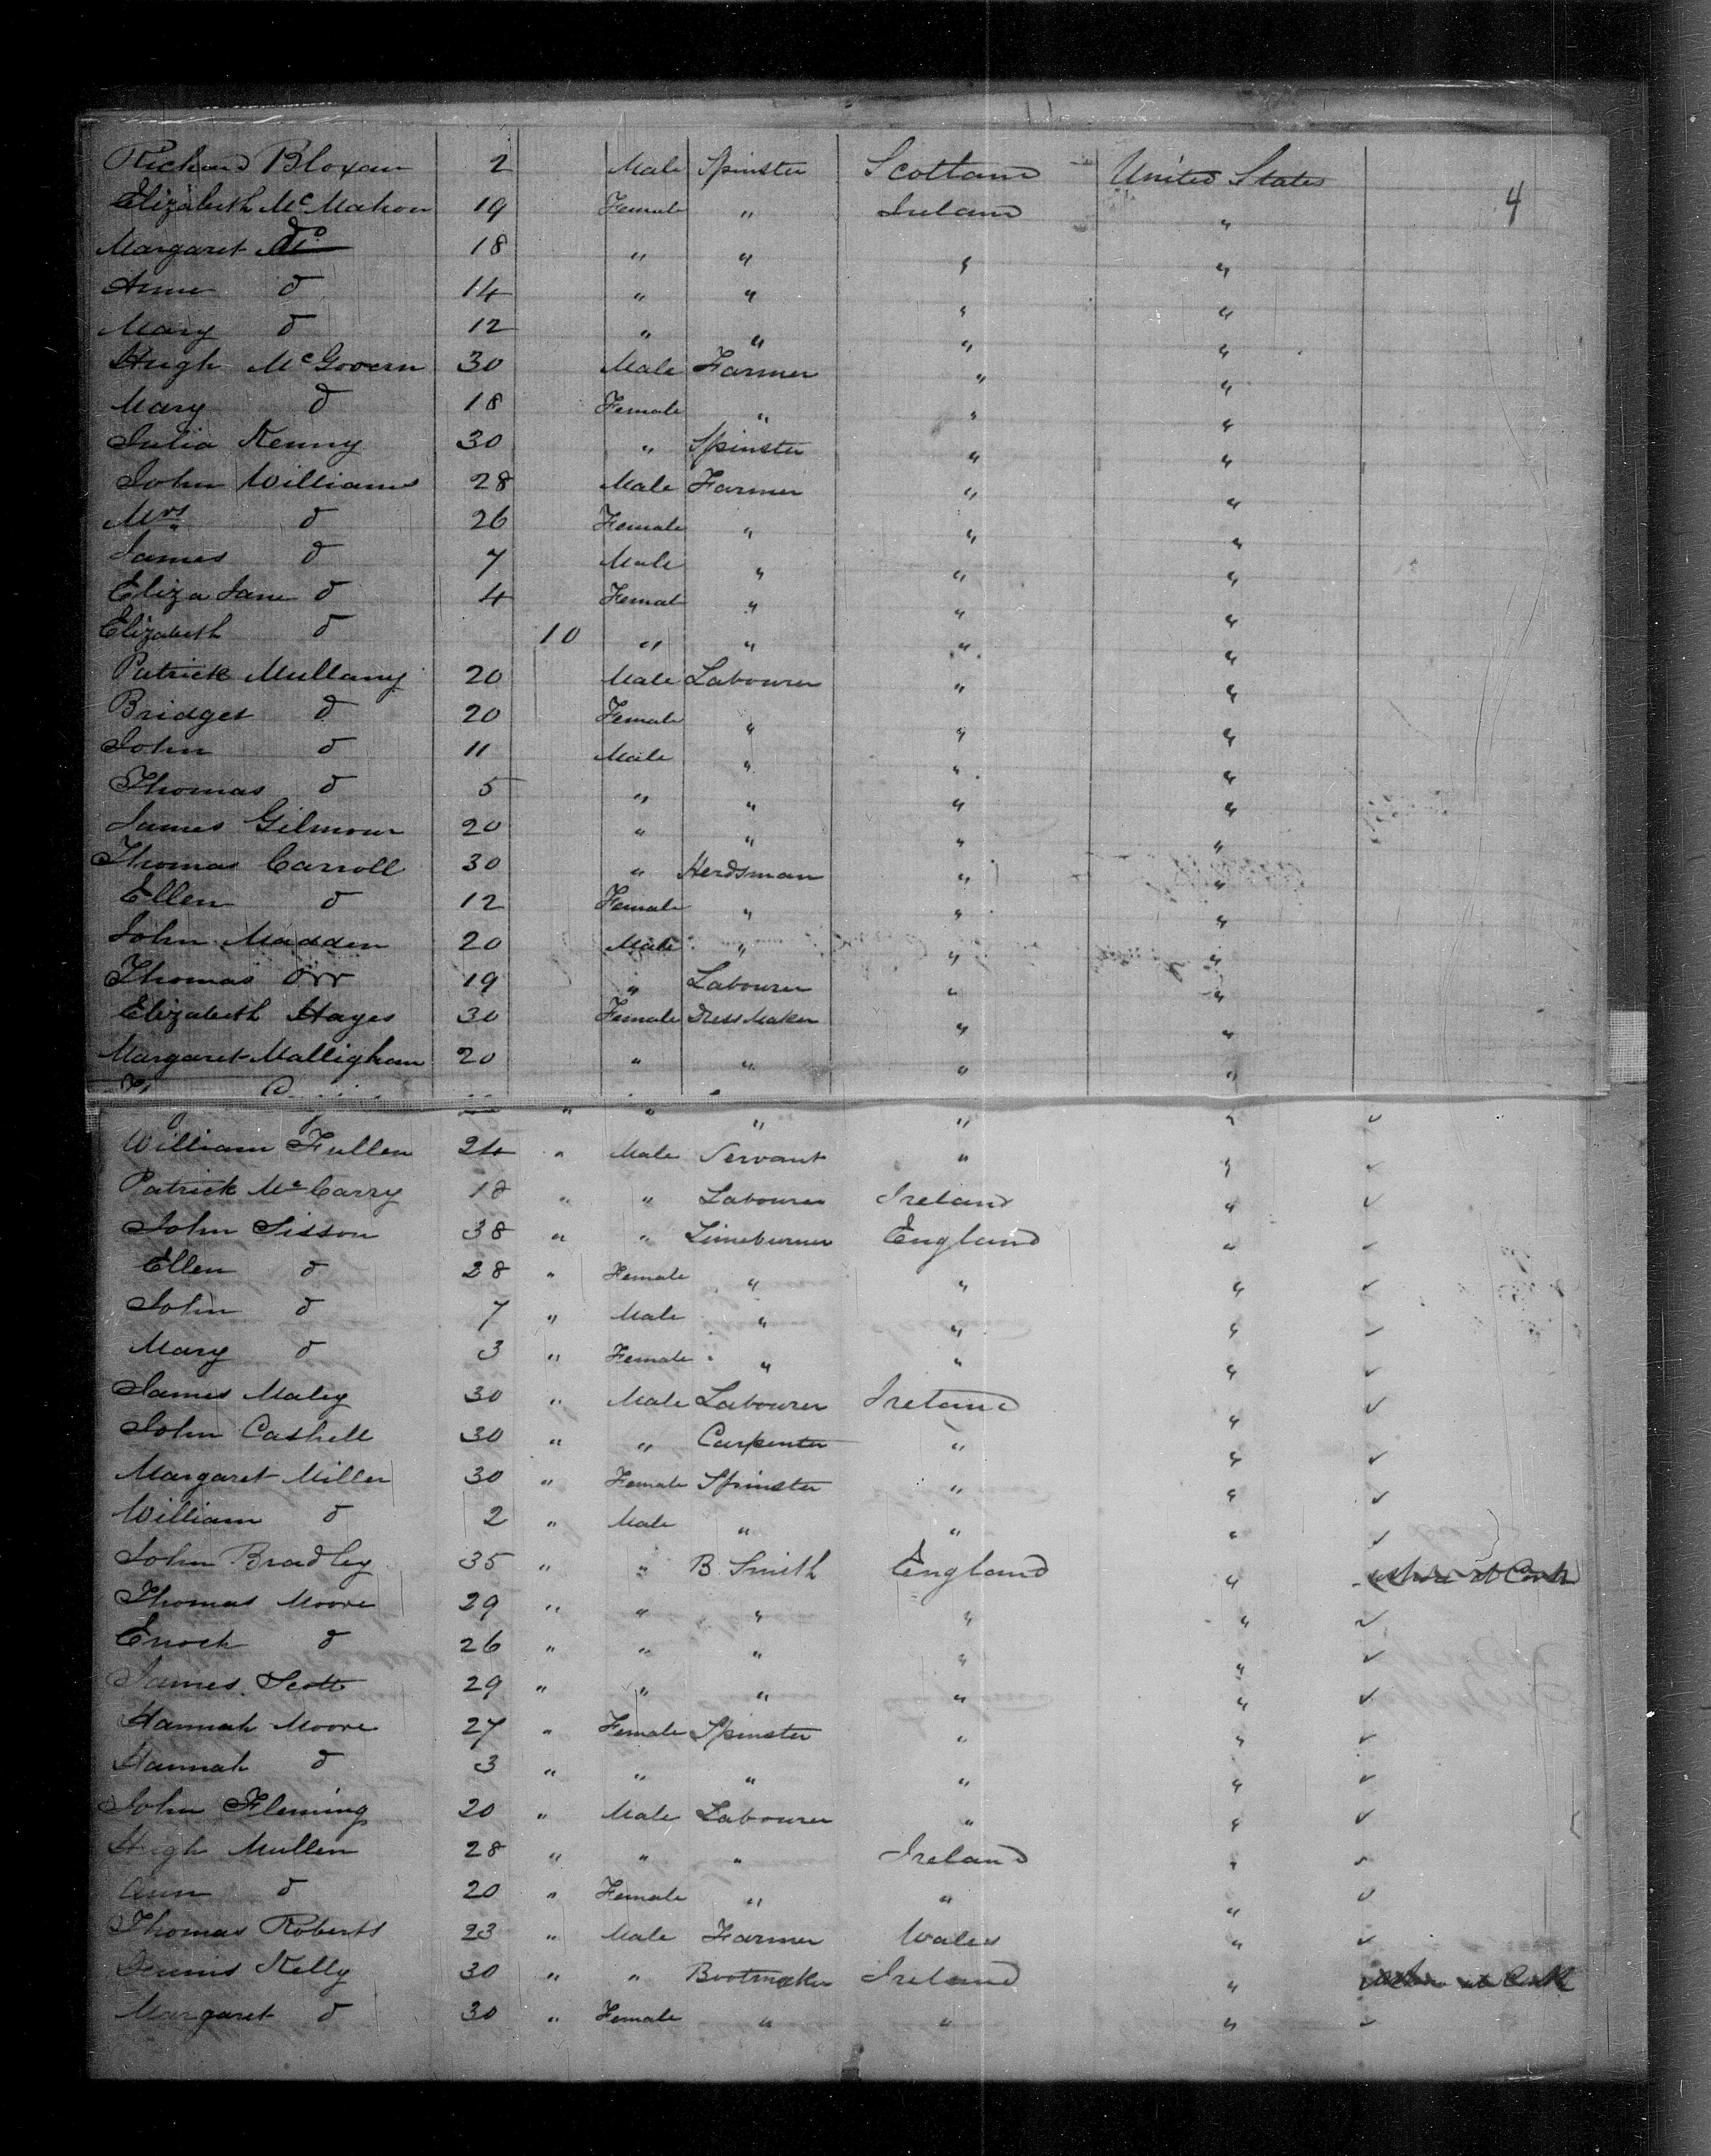 Richard Bloxam 2 Male Spinster Scotland United States
4
Elizabeth McMahon 19 Female " Ireland "
Margaret Do 18 " " " "
Anne d 14 " " " "
Mary d 12 " " " "
Hugh McGovern 30 Male Farmer " "
Mary d 18 Female " " "
Julia Kenny 30 " Spinster " "
John Williams 28 Male Farmer " "
Mrs d 26 Female " " "
James d 7 Male " " "
Eliza Jane d 4 Female " " "
Elizabeth d 10 " " " "
Patrick Mullany 20 Male Labourer " "
Bridget d 20 Female " " "
John d 11 Male " " "
Thomas d 5 " " " "
James Gilmour 20 " " " "
Thomas Carroll 30 " Herdsman " "
Ellen d 12 Female " " "
John Madden 20 Male " " "
Thomas Orr 19 " Labourer " "
Elizabeth Hayes 30 Female Dress Maker " "
Margaret Malligham 20 " " " "
" " " " " ✓
William Fullen 24 " Male Servant " " ✓
Patrick McCarry 18 " " Labourer Ireland " ✓
John Sisson 38 " " Limeburner England " ✓
Ellen d 28 " Female " " " ✓
John d 7 " Male " " " ✓
Mary d 3 " Female " " " ✓
James Maley 30 " Male Labourer Ireland " ✓
John Cashell 30 " " Carpenter " " ✓
Margaret Miller 30 " Female Spinster " " ✓
William d 2 " Male " " " ✓
John Bradley 35 " " B. Smith England "
Thomas Moore 29 " " " " " ✓
Enoch d 26 " " " " " ✓
James Scott 29 " " " " " ✓
Hannah Moore 27 " Female Spinster " " ✓
Hannah d 3 " " " " " ✓
John Fleming 20 " Male Labourer " " ✓
Hugh Mullen 28 " " " Ireland " ✓
Ann d 20 " Female " " " ✓
Thomas Roberts 23 " Male Farmer Wales " ✓
Dennis Kelly 30 " " Bootmaker Ireland "
Margaret d 30 " Female " " " ✓